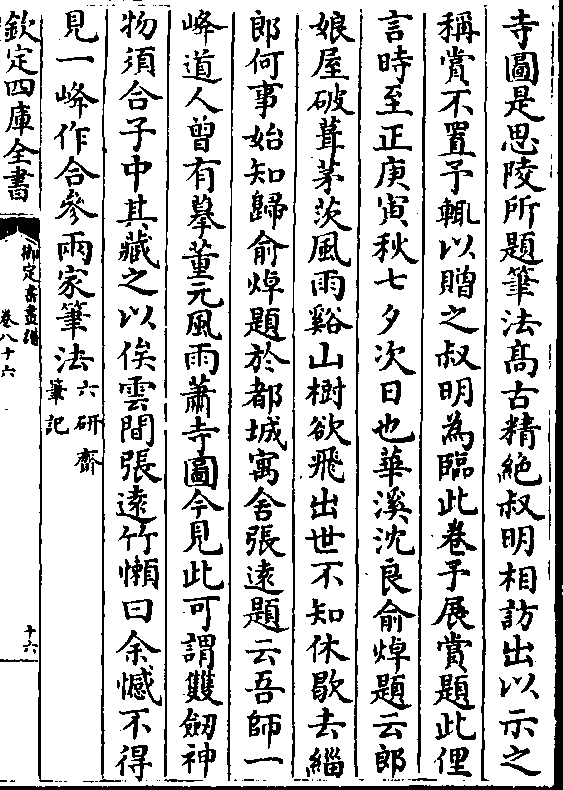 寺圖是思陵所題筆法髙古精絶叔明相訪出以示之
稱賞不置予輒以贈之叔明為臨此卷予展賞題此俚
言時至正庚寅秋七夕次日也華溪沈良俞焯題云郎
娘屋破葺茅茨風雨谿山樹欲飛出世不知休歇去緇
郎何事始知歸俞焯題於都城寓舍張逺題云吾師一
峰道人曾有摹董元風雨蕭寺圖今見此可謂雙劒神
物須合子中其藏之以俟雲間張逺竹懶曰余憾不得
見一峰作合參兩家筆法六研齋筆記
欽定四庫全書
御定書畫譜
卷八十六
十六